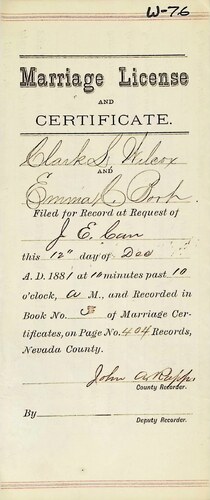 W-76
Marriage License
AND
CERTIFICATE.
Clark S. Wilcox
AND
Emma C. Book
Filed for Record at Request of
J. E. Carr
this 12" day of Dec
A. D. 1881 at 10 minutes past 10
o'clock, A M., and Recorded in
Book No. 3 of Marriage Cer-
tificates, on Page No. 404 Records,
Nevada County.
John A Rapp
County Recorder.
By
Deputy Recorder.